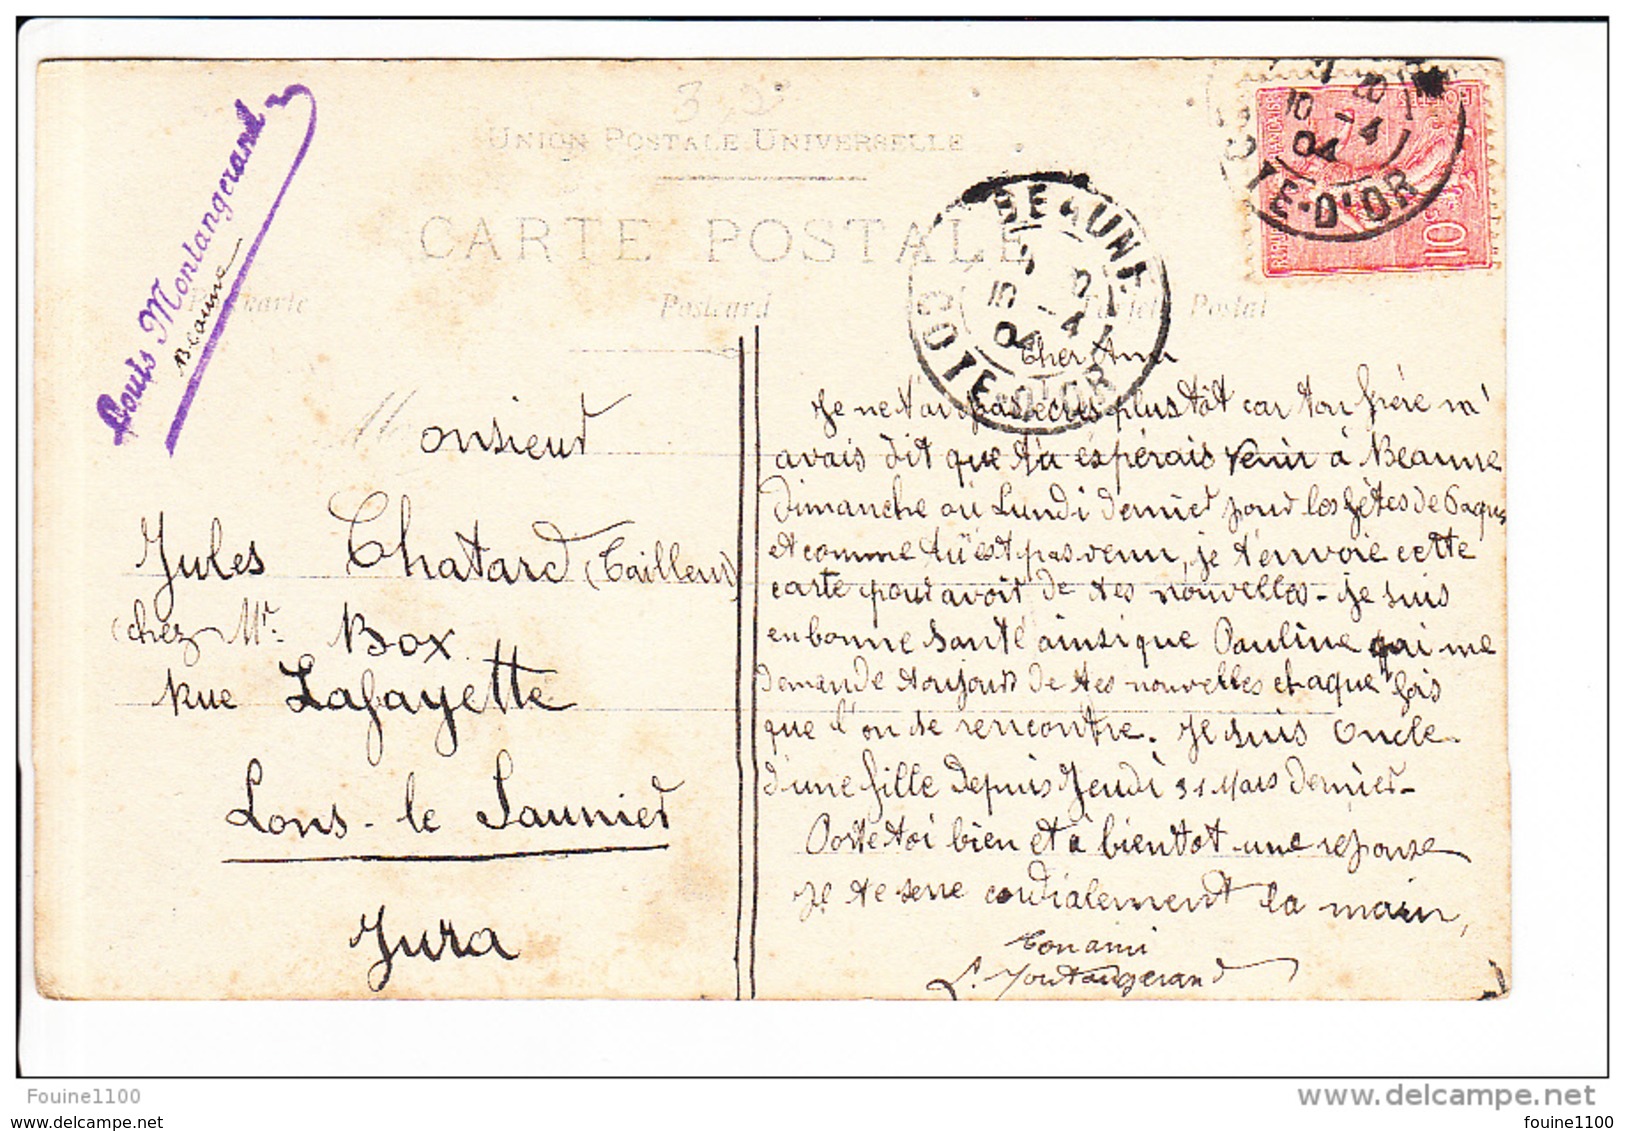 Louis Montangerand
Beaune
3,20
UNION POSTALE UNIVERSELLE
CARTE POSTALE
Postkarte
Postcard
Tarjeta Postal
BEAUNE
10 - 4
04
COTE-D'OR
20
10 - 4
04
COTE-D'OR
POSTES
10c
Monsieur
Jules Chatard (Tailleur)
chez Mr. Box
Rue Lafayette
Lons-le Saunier
Jura
Cher Ami
Je ne t'ai pas écris plus tôt car ton frère m'
avais dit que tu éspérais venir à Beaune
Dimanche ou Lundi dernier pour les fêtes de Paques
et comme tu est pas venu, je t'envoie cette
carte pour avoir de tes nouvelles - Je suis
en bonne santé ainsi que Pauline qui me
demande toujours de tes nouvelles chaque fois
que l'on se rencontre. Je suis Oncle
d'une fille depuis Jeudi 31 Mars dernier -
Porte toi bien et à bientot une réponse
Je te serre cordialement la main,
Ton ami
L. Montangerand
Fouine1100
delcampe.net
www.delcampe.net
fouine1100